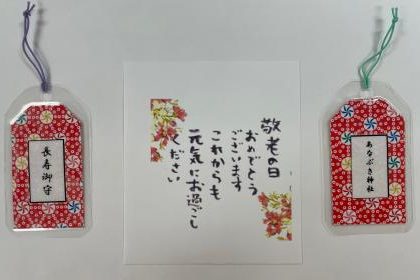 長寿御守
敬老の日
おめでとう
ございます
これからも
元気にお過ごし
ください
あなぶき神社